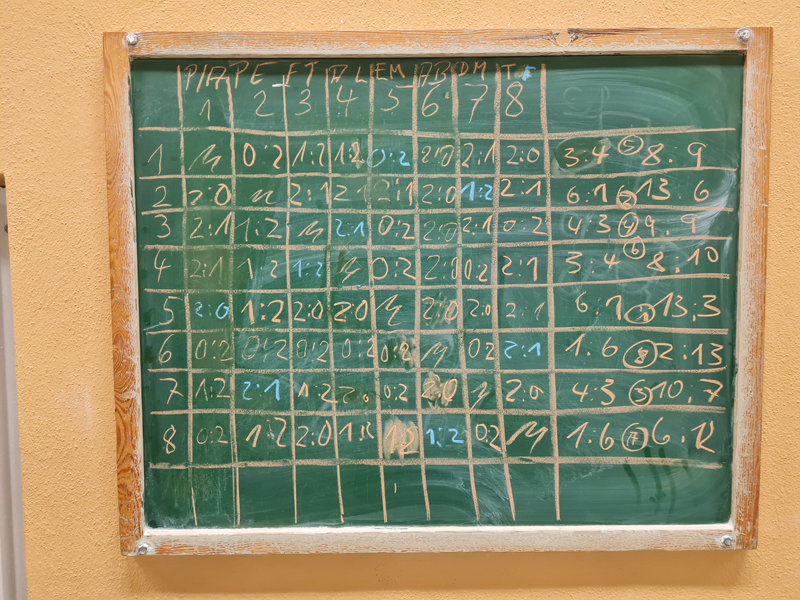 PIA PE FT EM AB DM
1 2 3 4 5 6 7 8
1 0:2 1:2 1:2 0:2 2:0 2:1 2:0 3:4 5 8:9
2 2:0 2:1 2:1 2:1 2:0 1:2 2:1 6:1 2 13:6
3 2:1 1:2 2:1 0:2 2:0 2:1 0:2 4:3 4 9:9
4 2:1 1:2 1:2 0:2 2:0 0:2 2:1 3:4 6 8:10
5 2:0 1:2 2:0 2:0 2:0 2:0 2:1 6:1 1 13:3
6 0:2 0:2 0:2 0:2 0:2 0:2 2:1 1:6 8 2:13
7 1:2 2:1 1:2 2:0 0:2 2:0 2:0 4:3 3 10:7
8 0:2 1:2 2:0 1:2 1:2 1:2 0:2 1:6 7 6:12